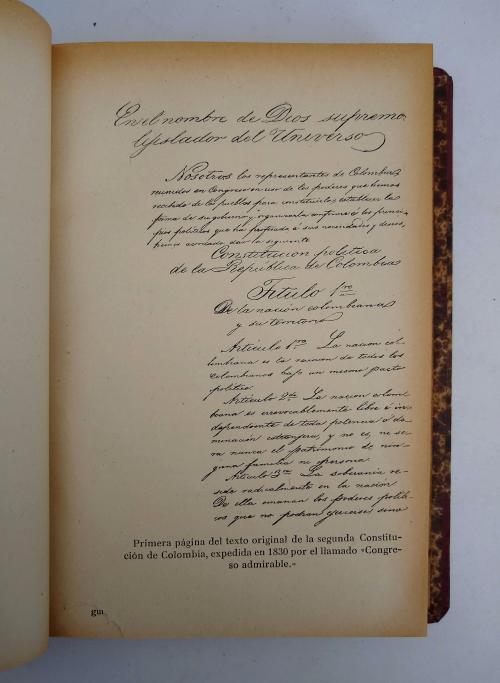 En el nombre de Dios supremo
lejislador del Universo
Nosotros los representantes de Colombia,
reunidos en Congreso en uso de los poderes que hemos
recibido de los pueblos para constituirla, establecer la
forma de su gobierno y organizarla conforme á los princi-
pios políticos que ha profesado á sus necesidades y deseos,
hemos acordado dar la siguiente
Constitucion politica
de la República de Colombia
Titulo 1ro
De la nacion colombiana
y su territorio
Articulo 1ro La nacion col-
ombiana es la reunion de todos los
colombianos bajo un mismo pacto
politico
Articulo 2do La nacion colom-
biana es irrevocablemente libre é in-
dependiente de toda potencia ó do-
minacion estranjera, y no es, ni se-
ra nunca el patrimonio de nin-
guna familia ni persona.
Articulo 3ro La soberania re-
side radicalmente en la nacion
De ella emanan los poderes politi-
cos que no podran ejercerse sino
Primera página del texto original de la segunda Constitu-
ción de Colombia, expedida en 1830 por el llamado «Congre-
so admirable.»